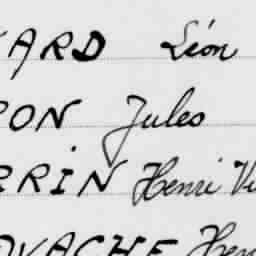 ARD Léon
RON Jules
RRIN Henri Vi
OVACHE Hen